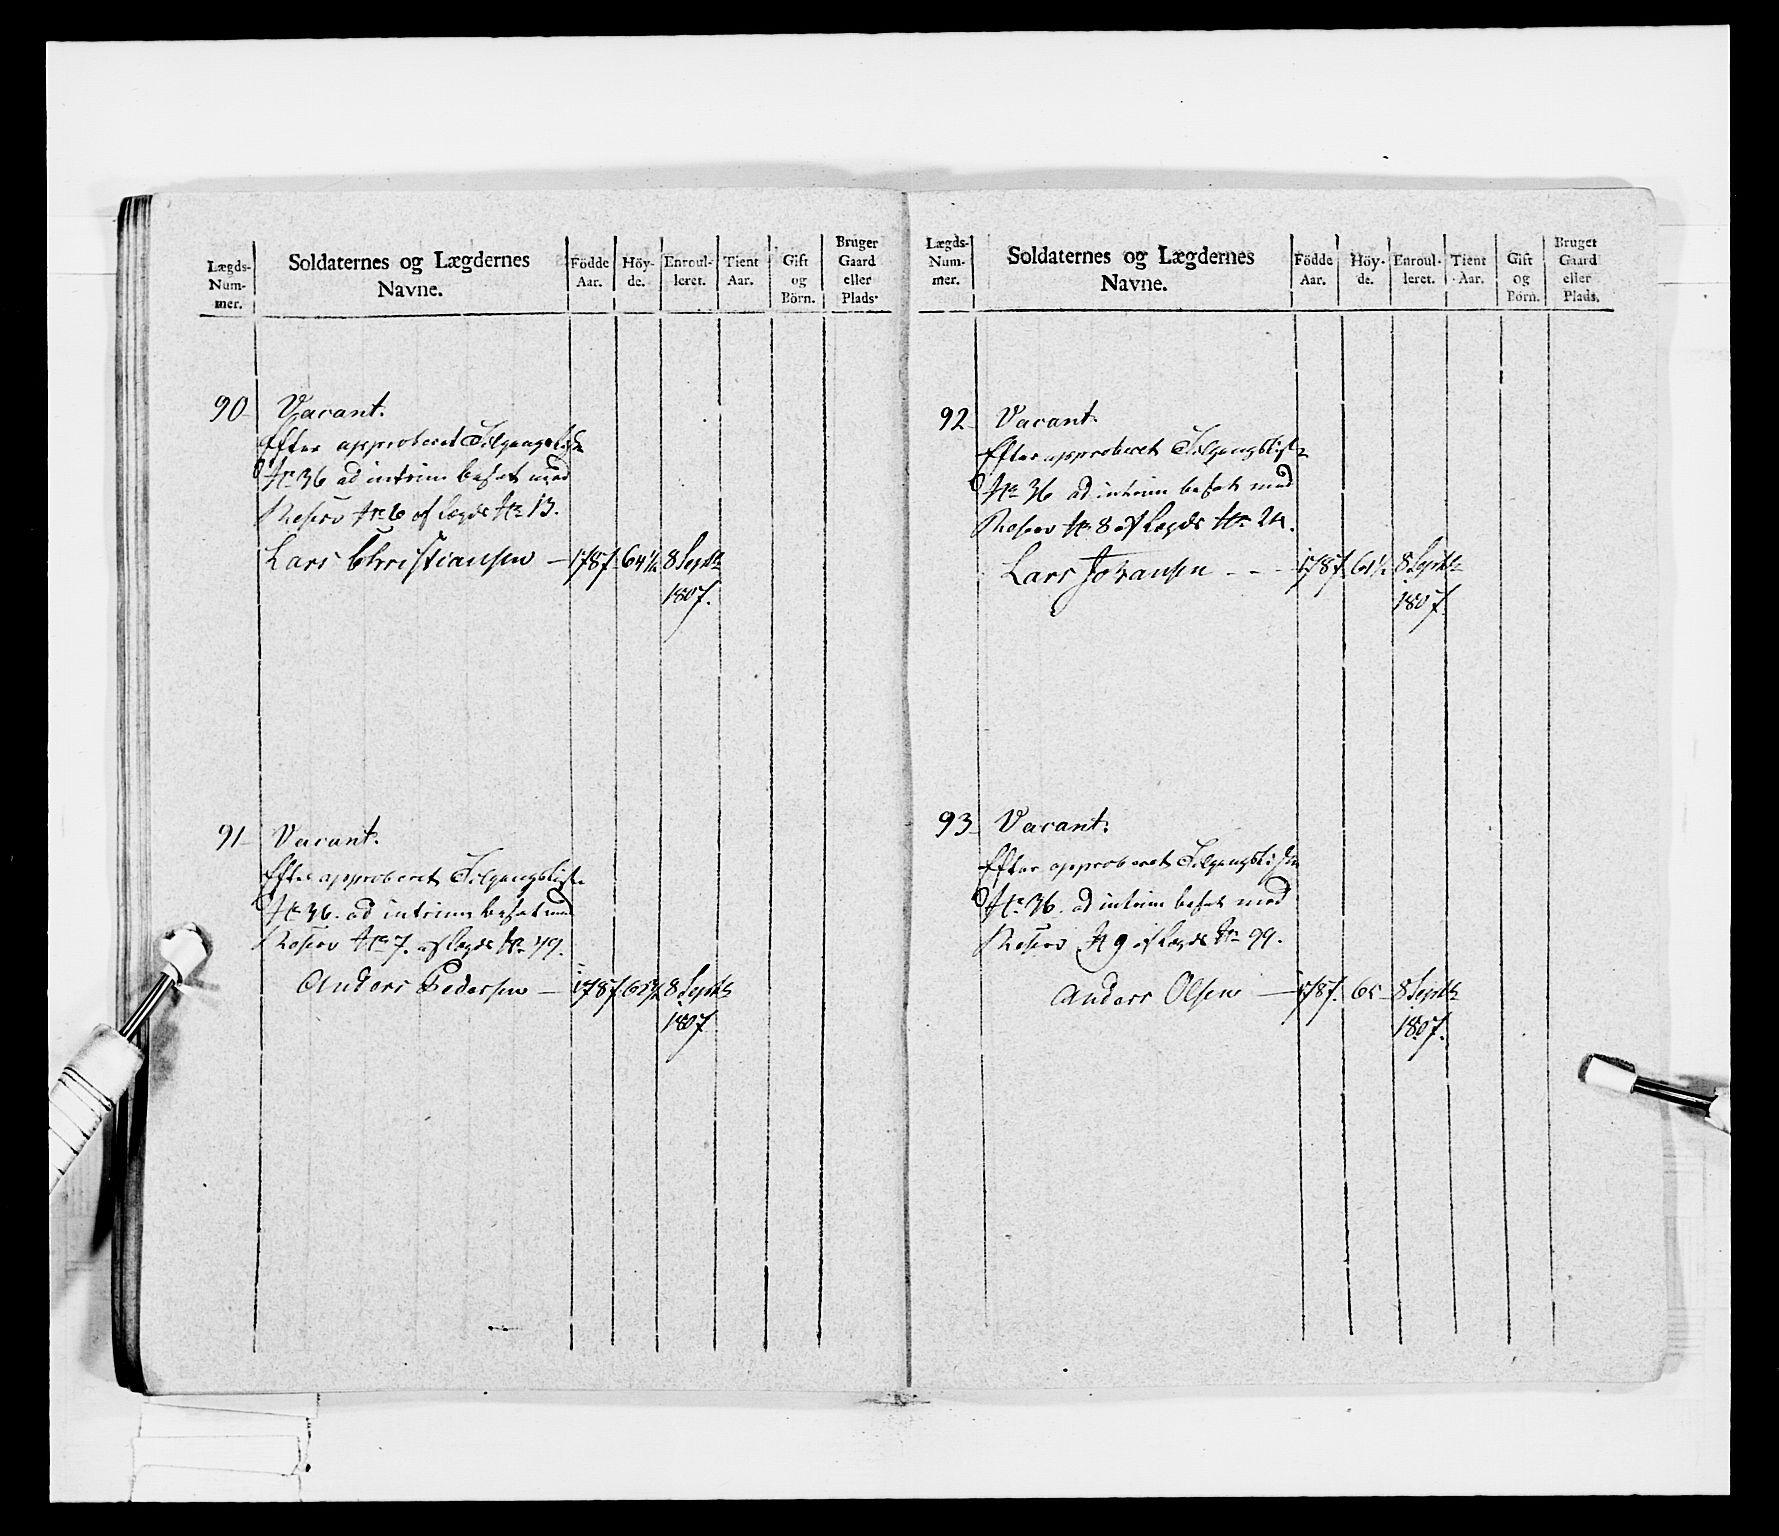 Lægds-Num-mer.
Soldaternes og Lægdernes Navne.
Födde Aar.
Höy-de.
Enroul-leret.
Tient Aar.
Gift og Börn.
Bruger Gaard eller Plads.
90 Vacant.
Efter approberet Tilgangsliste
No 36 ad intrim besat med
Reserv No 6 af Lægds No 13.
Lars Christiansen — 1787. 64½ 8 Septbr
1807.
91 Vacant.
Efter approberet Tilgangsliste
No 36. ad intrim besat med
Reserv No 7. af Lægds No 49.
Anders Pedersen — 1787. 65½ 8 Septbr
1807
Lægds-Num-mer.
Soldaternes og Lægdernes Navne.
Födde Aar.
Höy-de.
Enroul-leret.
Tient Aar.
Gift og Börn.
Bruger Gaard eller Plads.
92 Vacant.
Efter approberet Tilgangsliste
No 36 ad intrim besat med
Reserv No 8 af Lægds No 24.
Lars Johansen - - - 1787. 61½ 8 Septbr
1807.
93 Vacant.
Efter approberet Tilgangsliste
No 36. ad intrim besat med
Reserv No 9 af Lægds No 99.
Anders Olsen — 1787. 65 — 8 Septbr
1807.